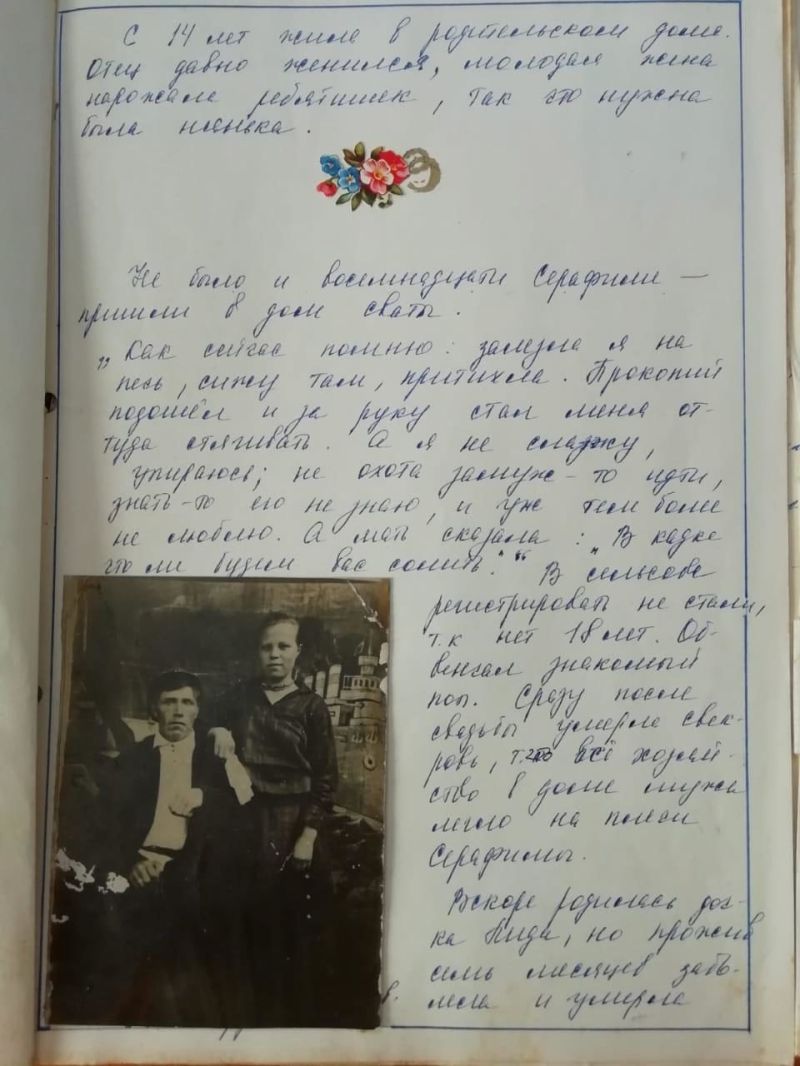 С 14 лет жила в родительском доме.
Отец давно женился, молодая жена
нарожала ребятишек, так что нужна
была нянька.
Не было и восемнадцати Серафиме —
пришли в дом сваты.
„Как сейчас помню: залезла я на
печь, сижу там, притихла. Прокопий
подошёл и за руку стал меня от-
туда стягивать. А я не слажу,
упираюсь; не охота замуж-то идти,
знать-то его не знаю, и уж тем боле
не люблю. А мать сказала: „В кадке
что ли будем вас солить." В сельсове
регистрировать не стали,
т.к нет 18 лет. Об-
венчал знакомый
поп. Сразу после
свадьбы умерла свек-
ровь, т.что всё хозяй-
ство в доме мужа
легло на плечи
Серафимы.
Вскоре родилась доч-
ка Лида, но прожив
семь месяцев забо-
лела и умерла